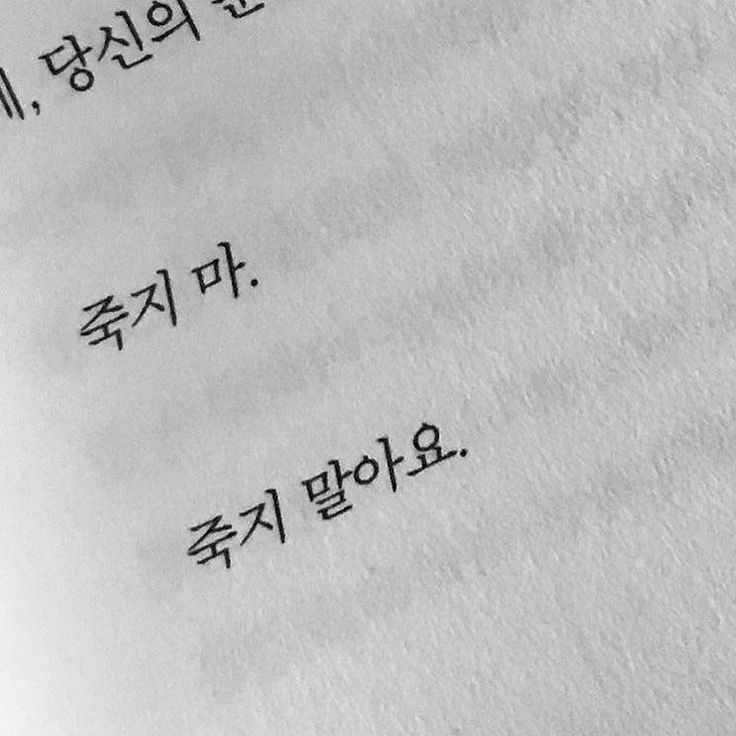 당신의
죽지 마.
죽지 말아요.